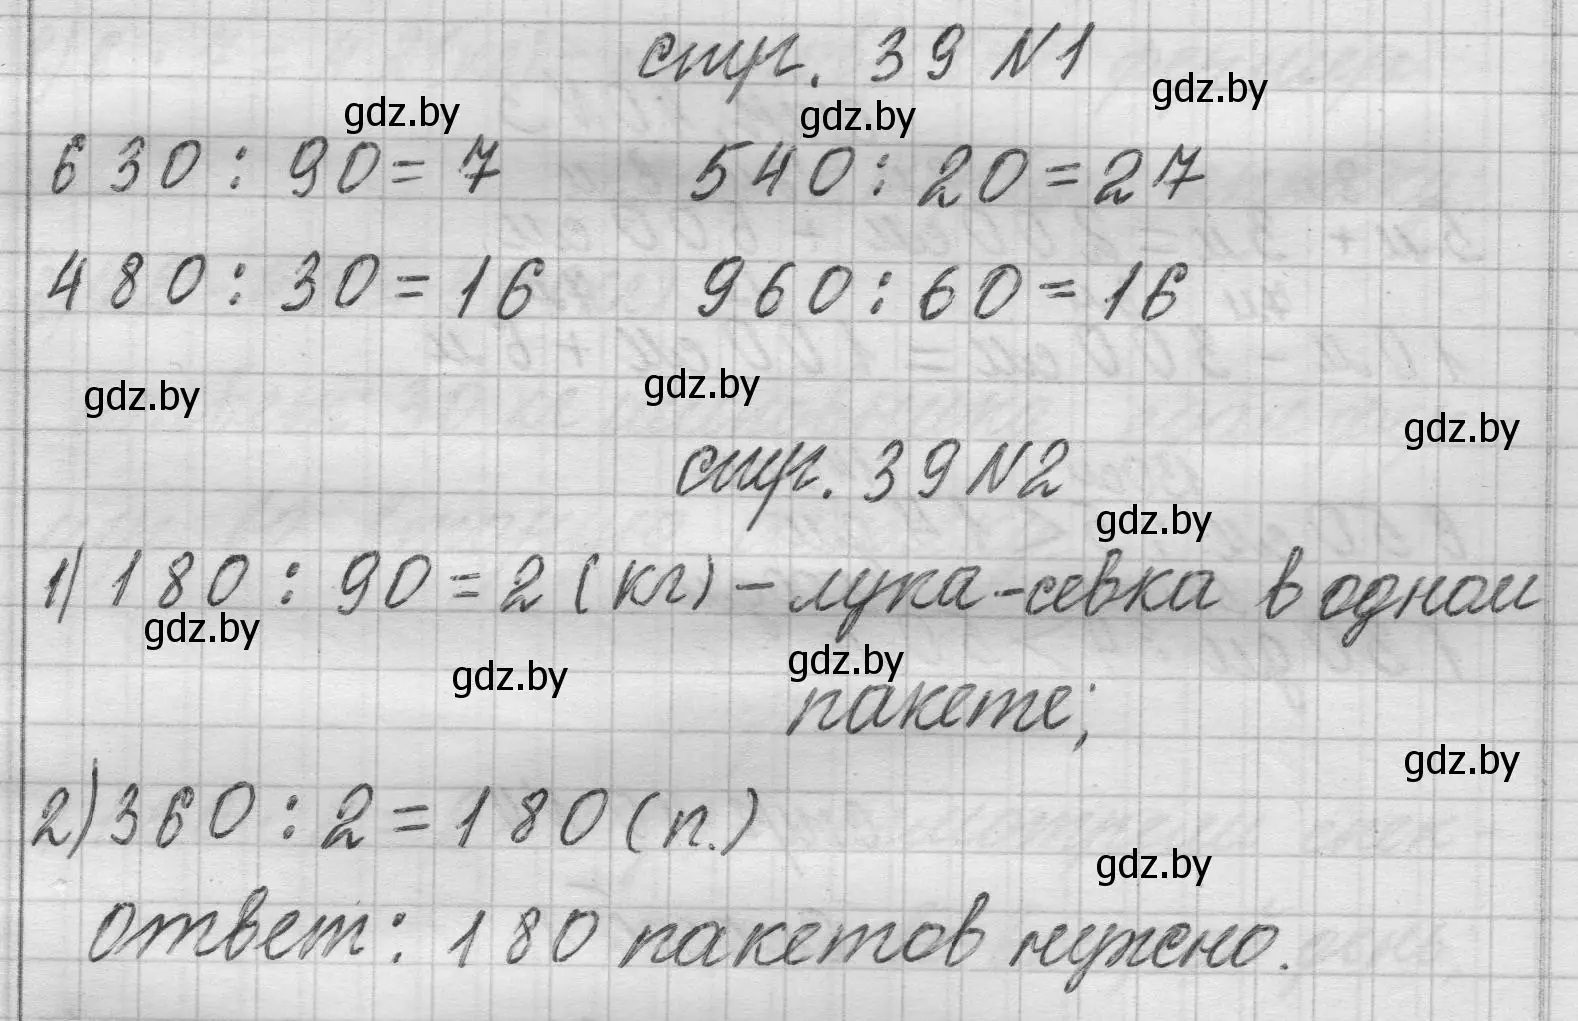 стр. 39 N1
gdz.by gdz.by gdz.by
630 : 90 = 7 540 : 20 = 27
480 : 30 = 16 960 : 60 = 16
gdz.by gdz.by gdz.by
стр. 39 N2
gdz.by
1) 180 : 90 = 2 (кг) – лука-севка в одном
gdz.by gdz.by gdz.by
пакете;
gdz.by
2) 360 : 2 = 180 (п.)
gdz.by
ответ: 180 пакетов нужно.